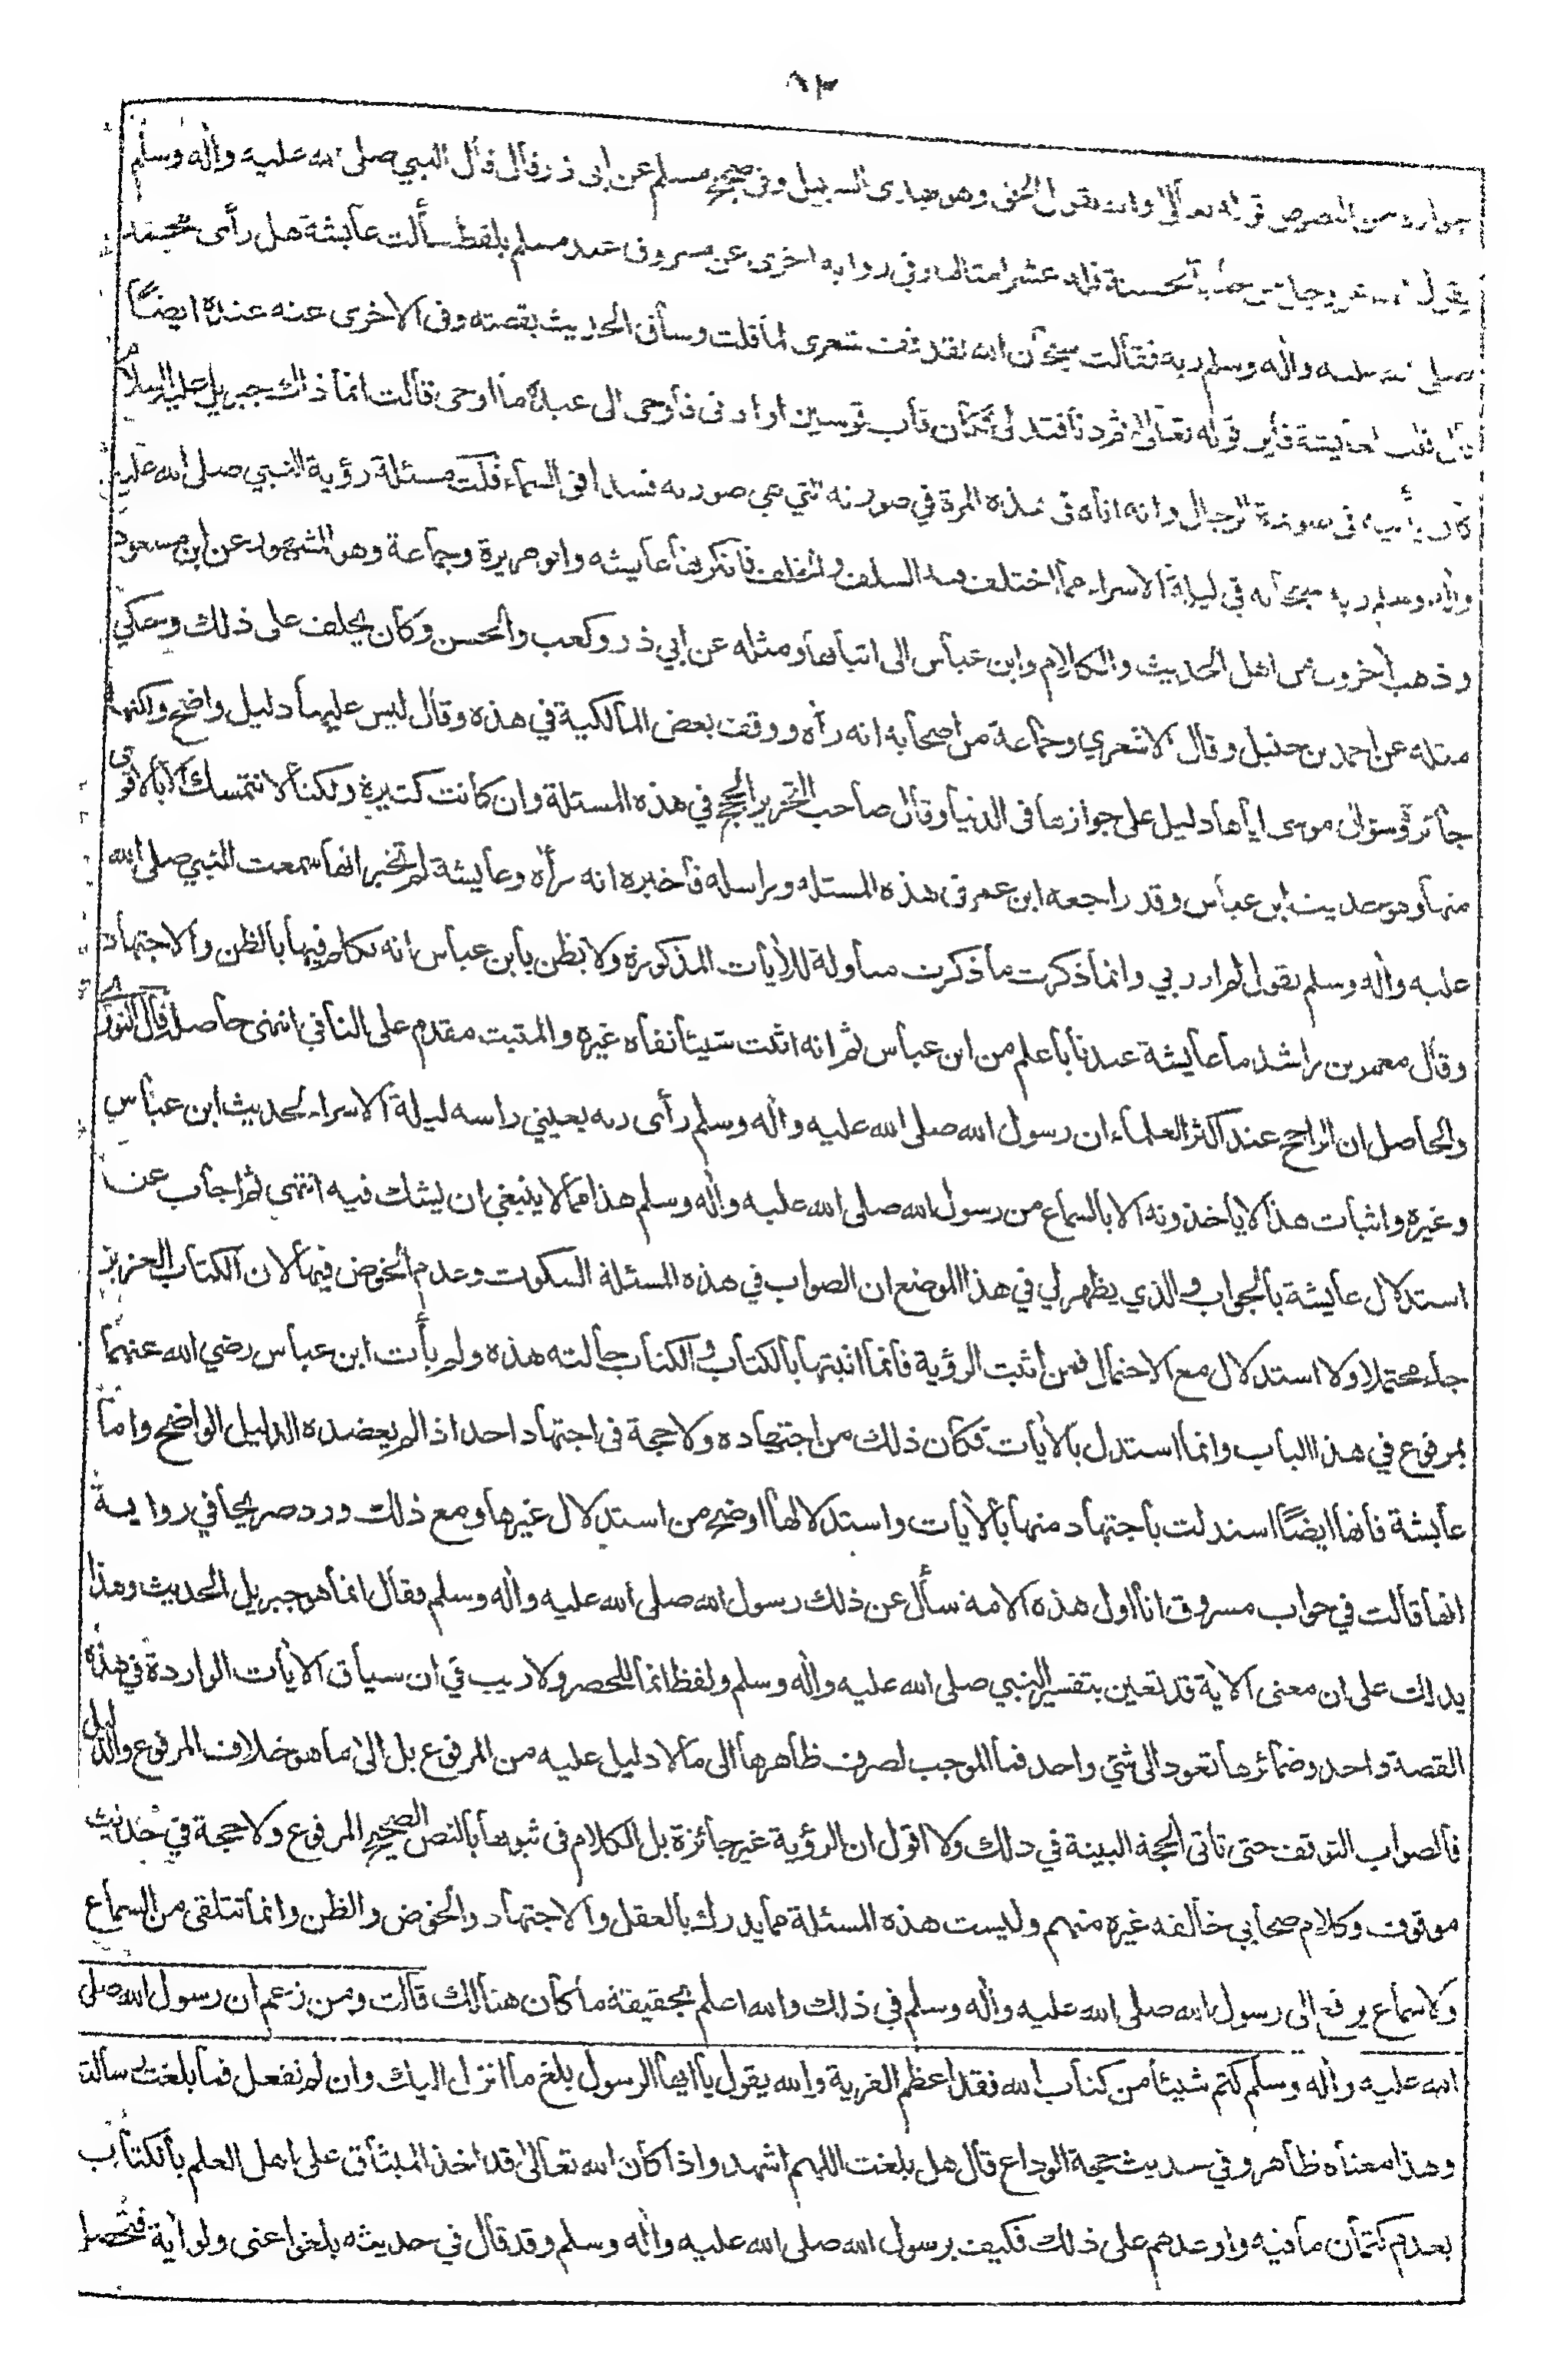 ٨٣
جوازه من النصوص قوله تعالى والله يقول الحق وهو يهدى السبيل وفى صحيح مسلم عن ابى ذر قال قال النبي صلى الله عليه واله وسلم
يقول الله عز وجل من جاء بالحسنة فله عشر امثالها وفي رواية اخرى عن مسروق عند مسلم بلفظ سألت عايشة هل رأى محمد
صلى الله عليه واله وسلم ربه فقالت سبحان الله لقد قف شعرى لما قلت وساق الحديث بقصته وفى الاخرى عنه عنده ايضاً
قال قلت لعايشة فاين قوله تعالى ثم دنا فتدلى فكان قاب قوسين او ادنى فأوحى الى عبده ما أوحى قالت انما ذاك جبريل عليه السلام
كان يأتيه فى صورة الرجال وانه اتاه فى هذه المرة في صورته التي هي صورته فسد افق السماء قلت مسئلة رؤية النبي صلى الله عليه
واله وسلم ربه سبحانه في ليلة الاسراء مما اختلف فيه السلف والخلف فانكرتها عايشه وابو هريرة وجماعة وهو المشهور عن ابن مسعود
وذهب أخرون من اهل الحديث والكلام وابن عباس الى اثباتها ومثله عن ابي ذر وكعب والحسن وكان يحلف على ذلك وحكي
مثله عن احمد بن حنبل وقال الاشعري وجماعة من اصحابه انه رأه ووقف بعض المالكية في هذه وقال ليس عليها دليل واضح ولكنها
جائزة وسؤال موسى اياها دليل على جوازها فى الدنيا وقال صاحب التحرير الحجج في هذه المسئلة وان كانت كثيرة ولكنا لا نتمسك الا بالاقوى
منها وهو حديث ابن عباس وقد راجعه ابن عمر فى هذه المسئله وراسله فأخبره انه رأه وعايشة لم تخبر انها سمعت النبي صلى الله
عليه واله وسلم يقول لم ار ربي وانما ذكرت ما ذكرت متأولة للأيات المذكورة ولا يظن بابن عباس انه تكلم فيها بالظن والاجتهاد
وقال معمر بن راشد ما عايشة عندنا بأعلم من ابن عباس ثم انه اثبت شيئا نفاه غيره والمثبت مقدم على النافي انتهى حاصله قال النووي
والحاصل ان الراجح عند اكثر العلماء ان رسول الله صلى الله عليه واله وسلم رأى ربه بعيني راسه ليلة الاسراء لحديث ابن عباس
وغيره واثبات هذا لا يأخذونه الا بالسماع من رسول الله صلى الله عليه واله وسلم هذا مما لا ينبغي ان يشك فيه انتهى ثم اجاب عن
استدلال عايشة بالجواب والذي يظهر لي في هذا الموضع ان الصواب في هذه المسئلة السكوت وعدم الخوض فيها لان الكتاب العزيز
جاء محتملا ولا استدلال مع الاحتمال فمن اثبت الرؤية فانما اثبتها بالكتاب والكتاب حالته هذه ولم يأت ابن عباس رضي الله عنهما
بمرفوع في هذا الباب وانما استدل بالأيات فكان ذلك من اجتهاده ولا حجة فى اجتهاد احد اذا لم يعضده الدليل الواضح واما
عايشة فانها ايضاً استدلت باجتهاد منها بالأيات واستدلالها اوضح من استدلال غيرها ومع ذلك ورد صريحا في رواية
انها قالت في جواب مسروق انا اول هذه الامة سأل عن ذلك رسول الله صلى الله عليه واله وسلم فقال انما هو جبريل الحديث وهذا
يدلك على ان معنى الاية قد تعين بتفسير النبي صلى الله عليه واله وسلم ولفظ انما للحصر ولا ريب في ان سياق الأيات الواردة في هذه
القصة واحد وضمائرها تعود الى شئ واحد فما الموجب لصرف ظاهرها الى ما لا دليل عليه من المرفوع بل الى ما هو خلاف المرفوع والدليل
فالصواب التوقف حتى تاتى الحجة البينة في ذلك ولا اقول ان الرؤية غير جائزة بل الكلام فى ثبوتها بالنص الصحيح المرفوع ولا حجة في حديث
موقوف وكلام صحابي خالفه غيره منهم وليست هذه المسئلة مما يدرك بالعقل والاجتهاد والخوض والظن وانما تتلقى من السماع
ولا سماع يرفع الى رسول الله صلى الله عليه واله وسلم في ذلك والله اعلم بحقيقة ما كان هنالك قالت ومن زعم ان رسول الله صلى
الله عليه واله وسلم كتم شيئا من كتاب الله فقد اعظم الفرية والله يقول يا ايها الرسول بلغ ما انزل اليك وان لم تفعل فما بلغت رسالته
وهذا معناه ظاهر وفي حديث حجة الوداع قال هل بلغت اللهم اشهد واذا كان الله تعالى قد اخذ الميثاق على اهل العلم بالكتاب
بعدم كتمان ما فيه واوعدهم على ذلك فكيف برسول الله صلى الله عليه واله وسلم وقد قال في حديثه بلغوا عنى ولو أية فتحصل